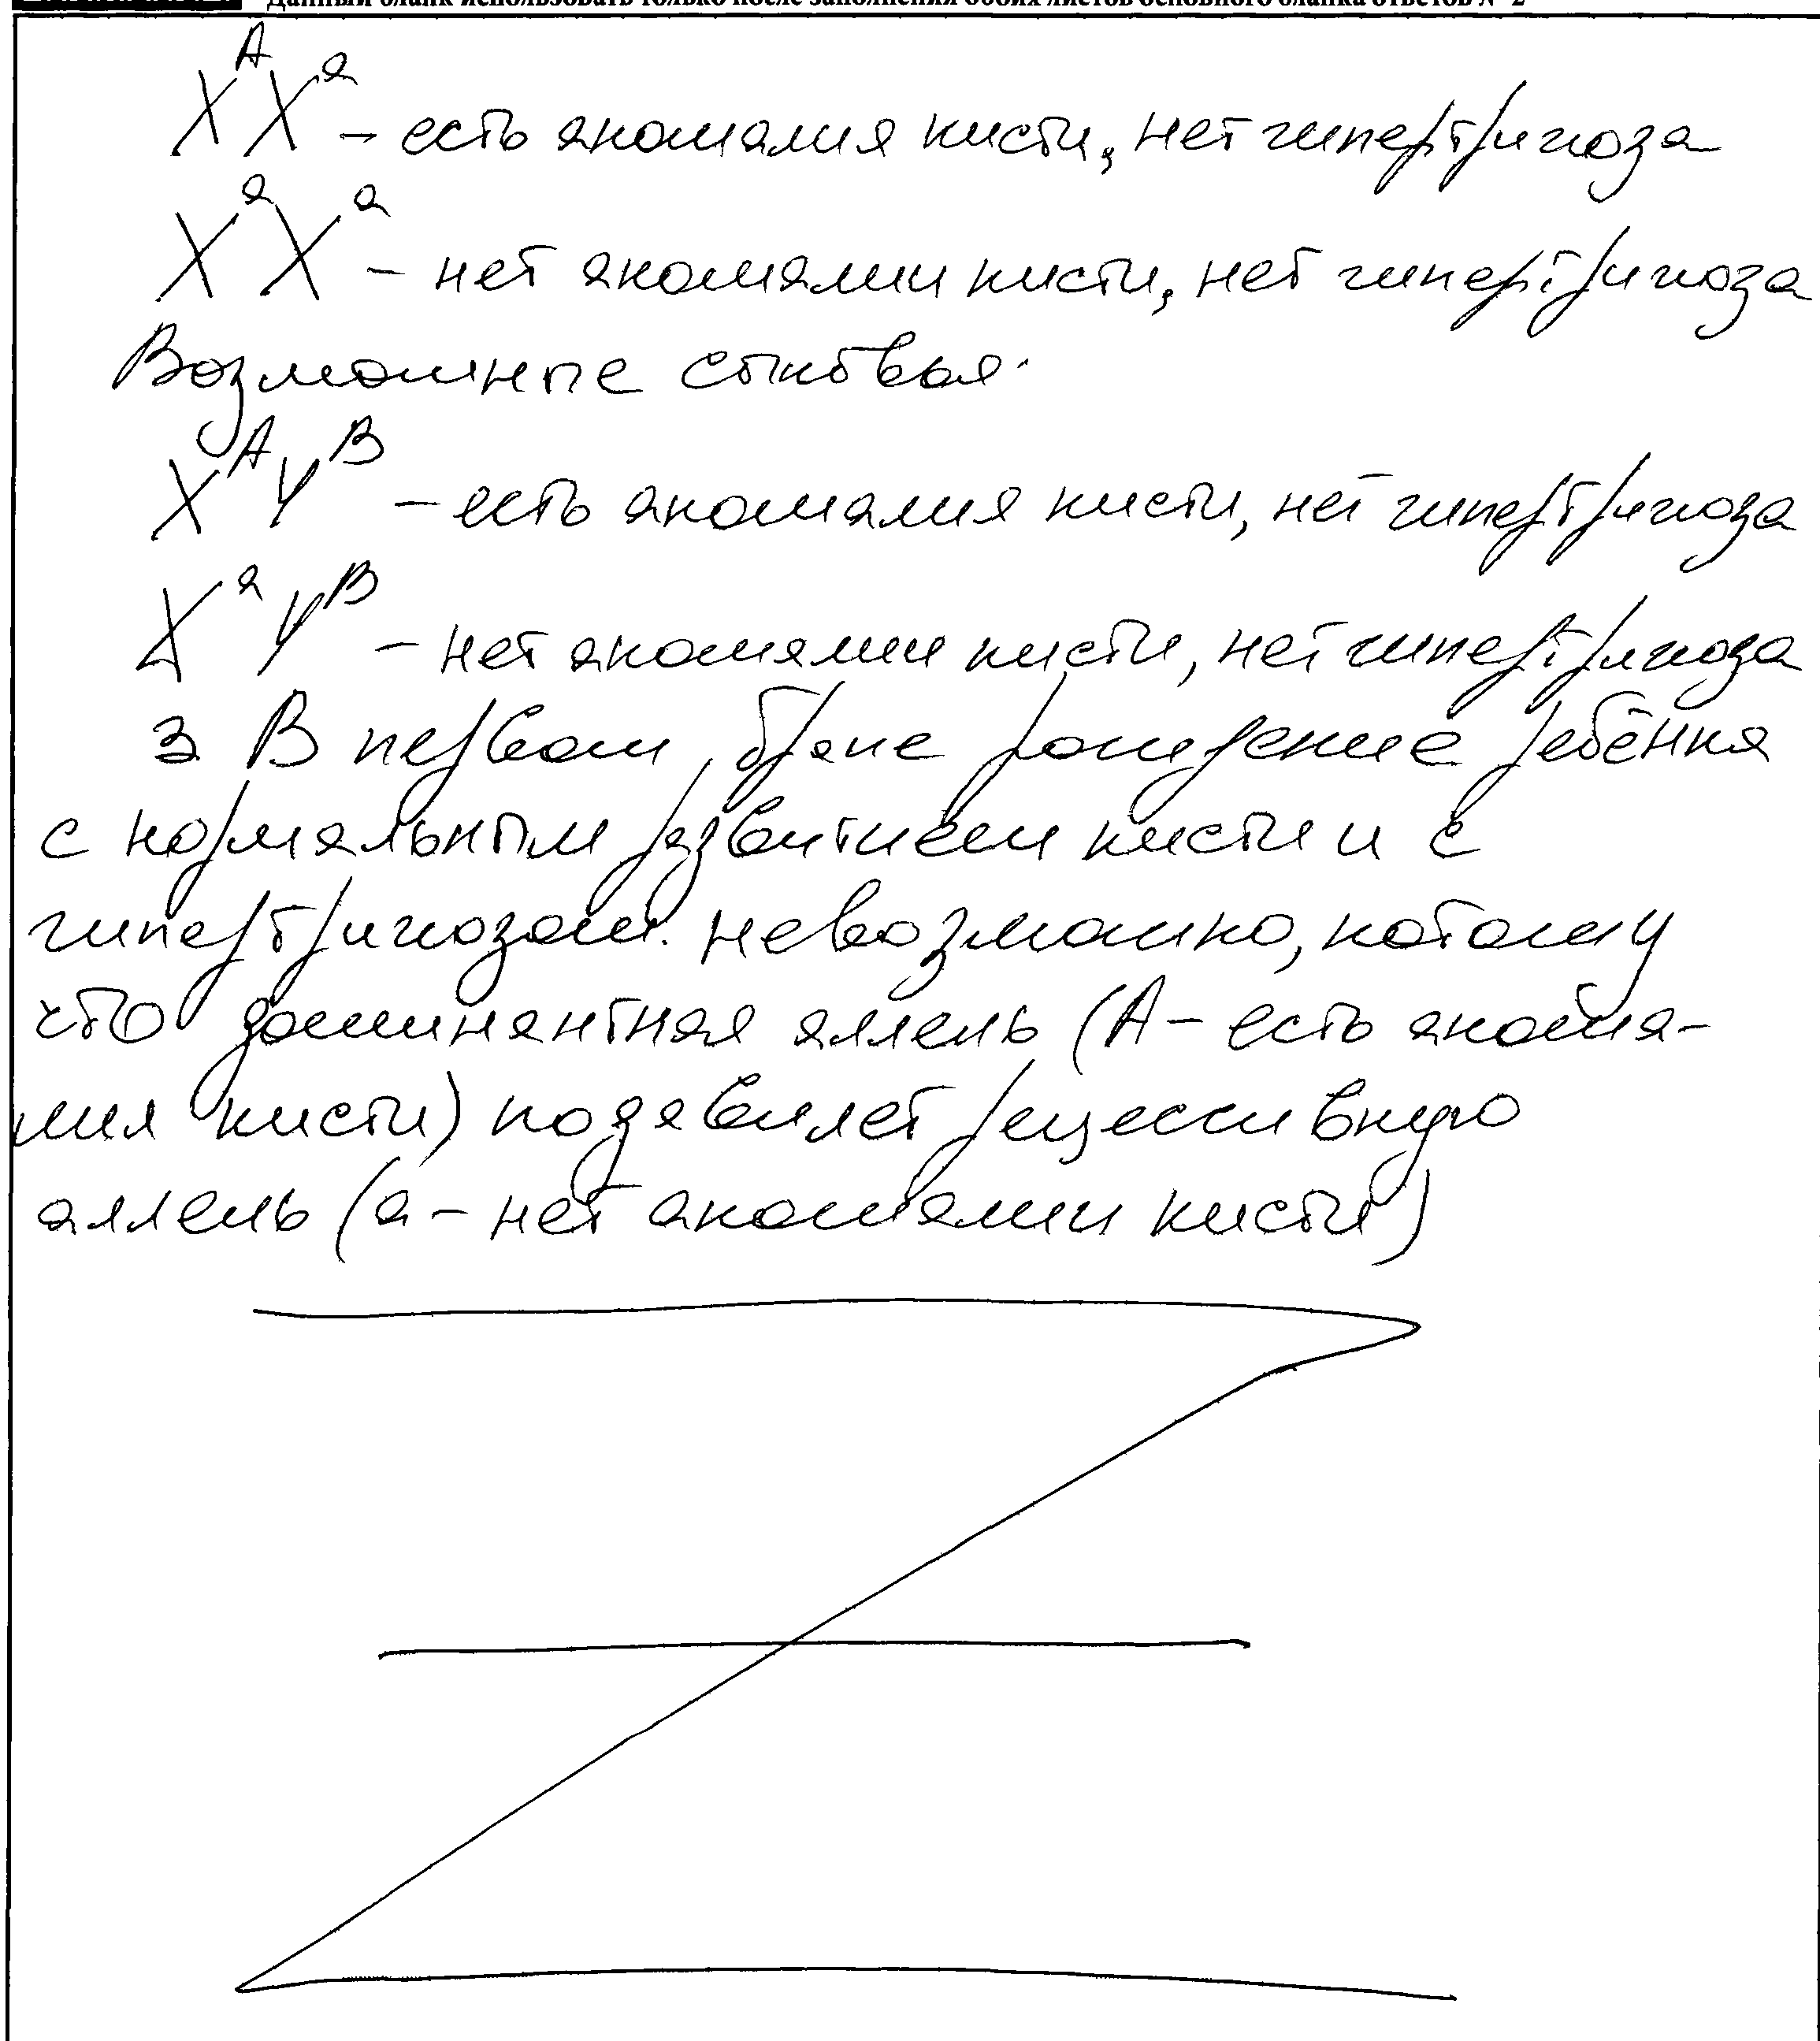 Данный бланк использовать только после заполнения обоих листов основного бланка ответов № 2
X^A X^a – есть аномалия кисти, нет гипертрихоза
X^a X^a – нет аномалии кисти, нет гипертрихоза
Возможные сыновья:
X^A Y^B – есть аномалия кисти, нет гипертрихоза
X^a Y^B – нет аномалии кисти, нет гипертрихоза
3 В первом браке рождение ребёнка
с нормальным развитием кисти и с
гипертрихозом невозможно, потому
что доминантная аллель (А – есть анома-
лия кисти) подавляет рецессивную
аллель (а – нет аномалии кисти)